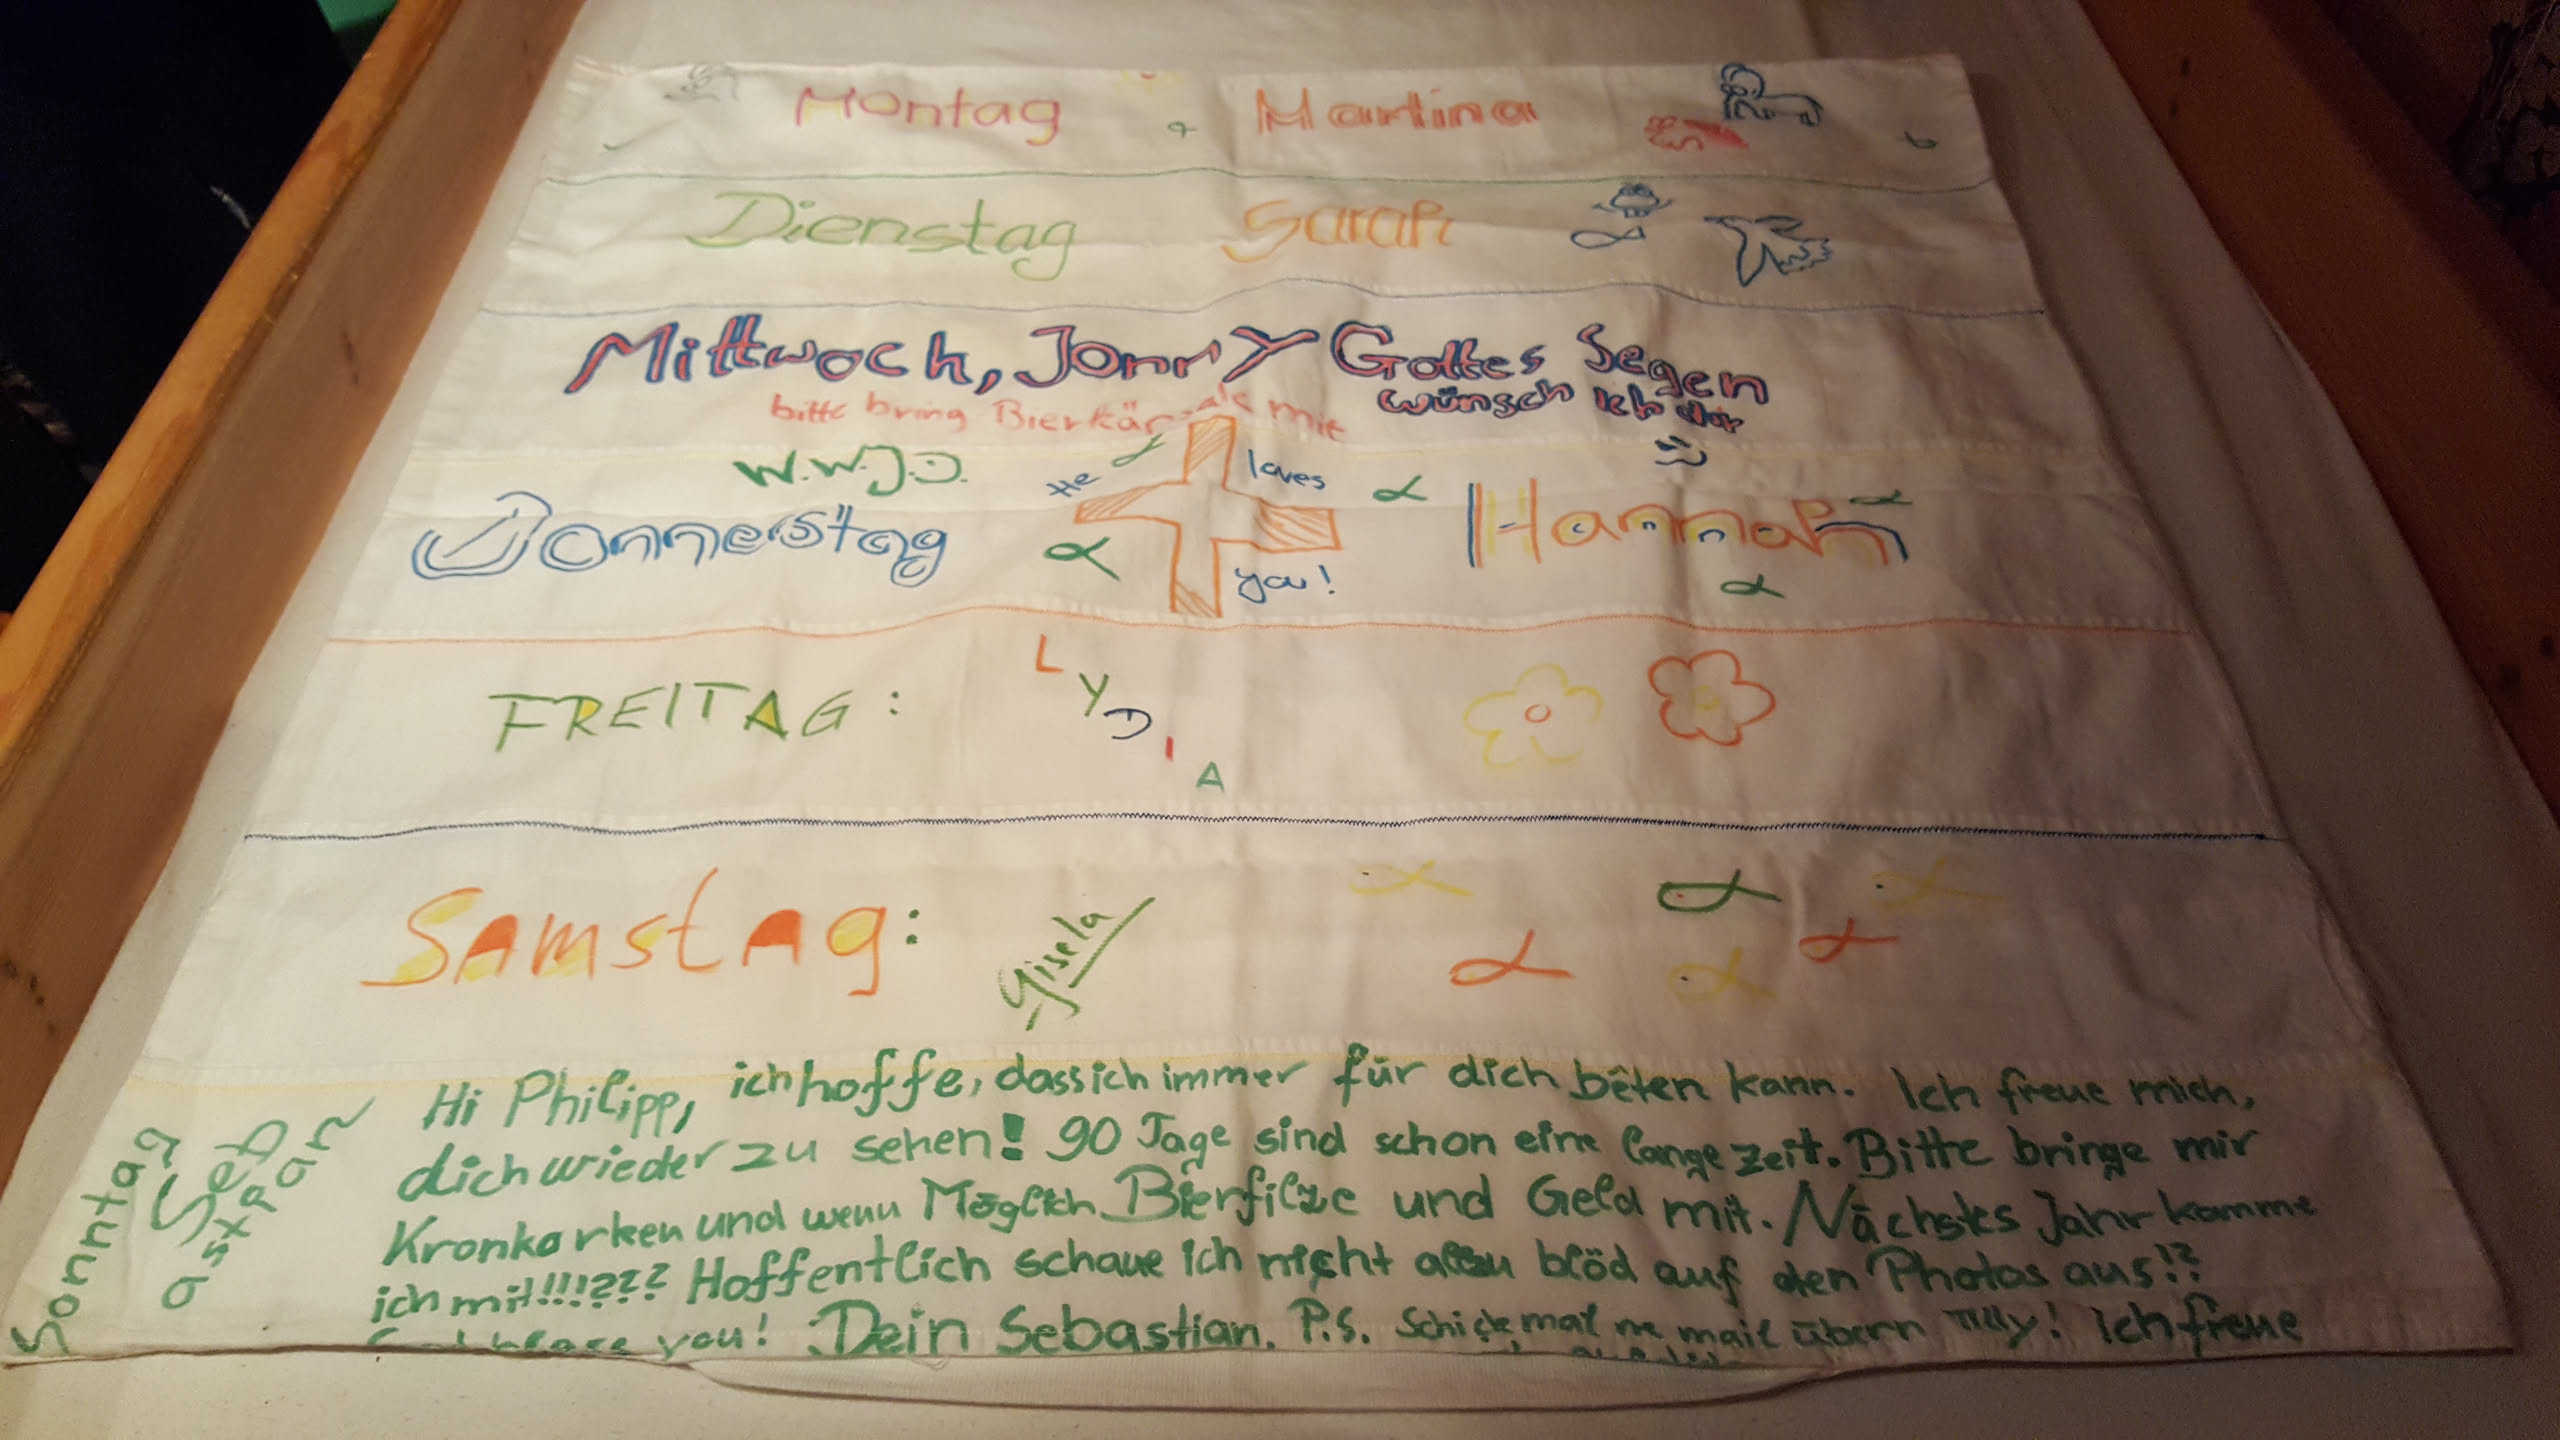 Montag Martina
Dienstag Sarah
Mittwoch, Jonny Gottes Segen
wünsch ich dir
bitte bring mit
W.W.J.D.
He loves
Donnerstag Hannah
you!
FREITAG: LYDIA
Samstag: Gisela
Sonntag
Sebastian
Hi Philipp, ich hoffe, dass ich immer für dich beten kann. Ich freue mich,
dich wieder zu sehen! 90 Tage sind schon eine lange Zeit. Bitte bringe mir
Kronkorken und wenn Möglich Bierfilze und Geld mit. Nächstes Jahr komme
ich mit!!!??? Hoffentlich schaue ich nicht allzu blöd auf den Photos aus!?
you! Dein Sebastian. P.S. Schicke mal ne mail übern Tilly! Ich freue